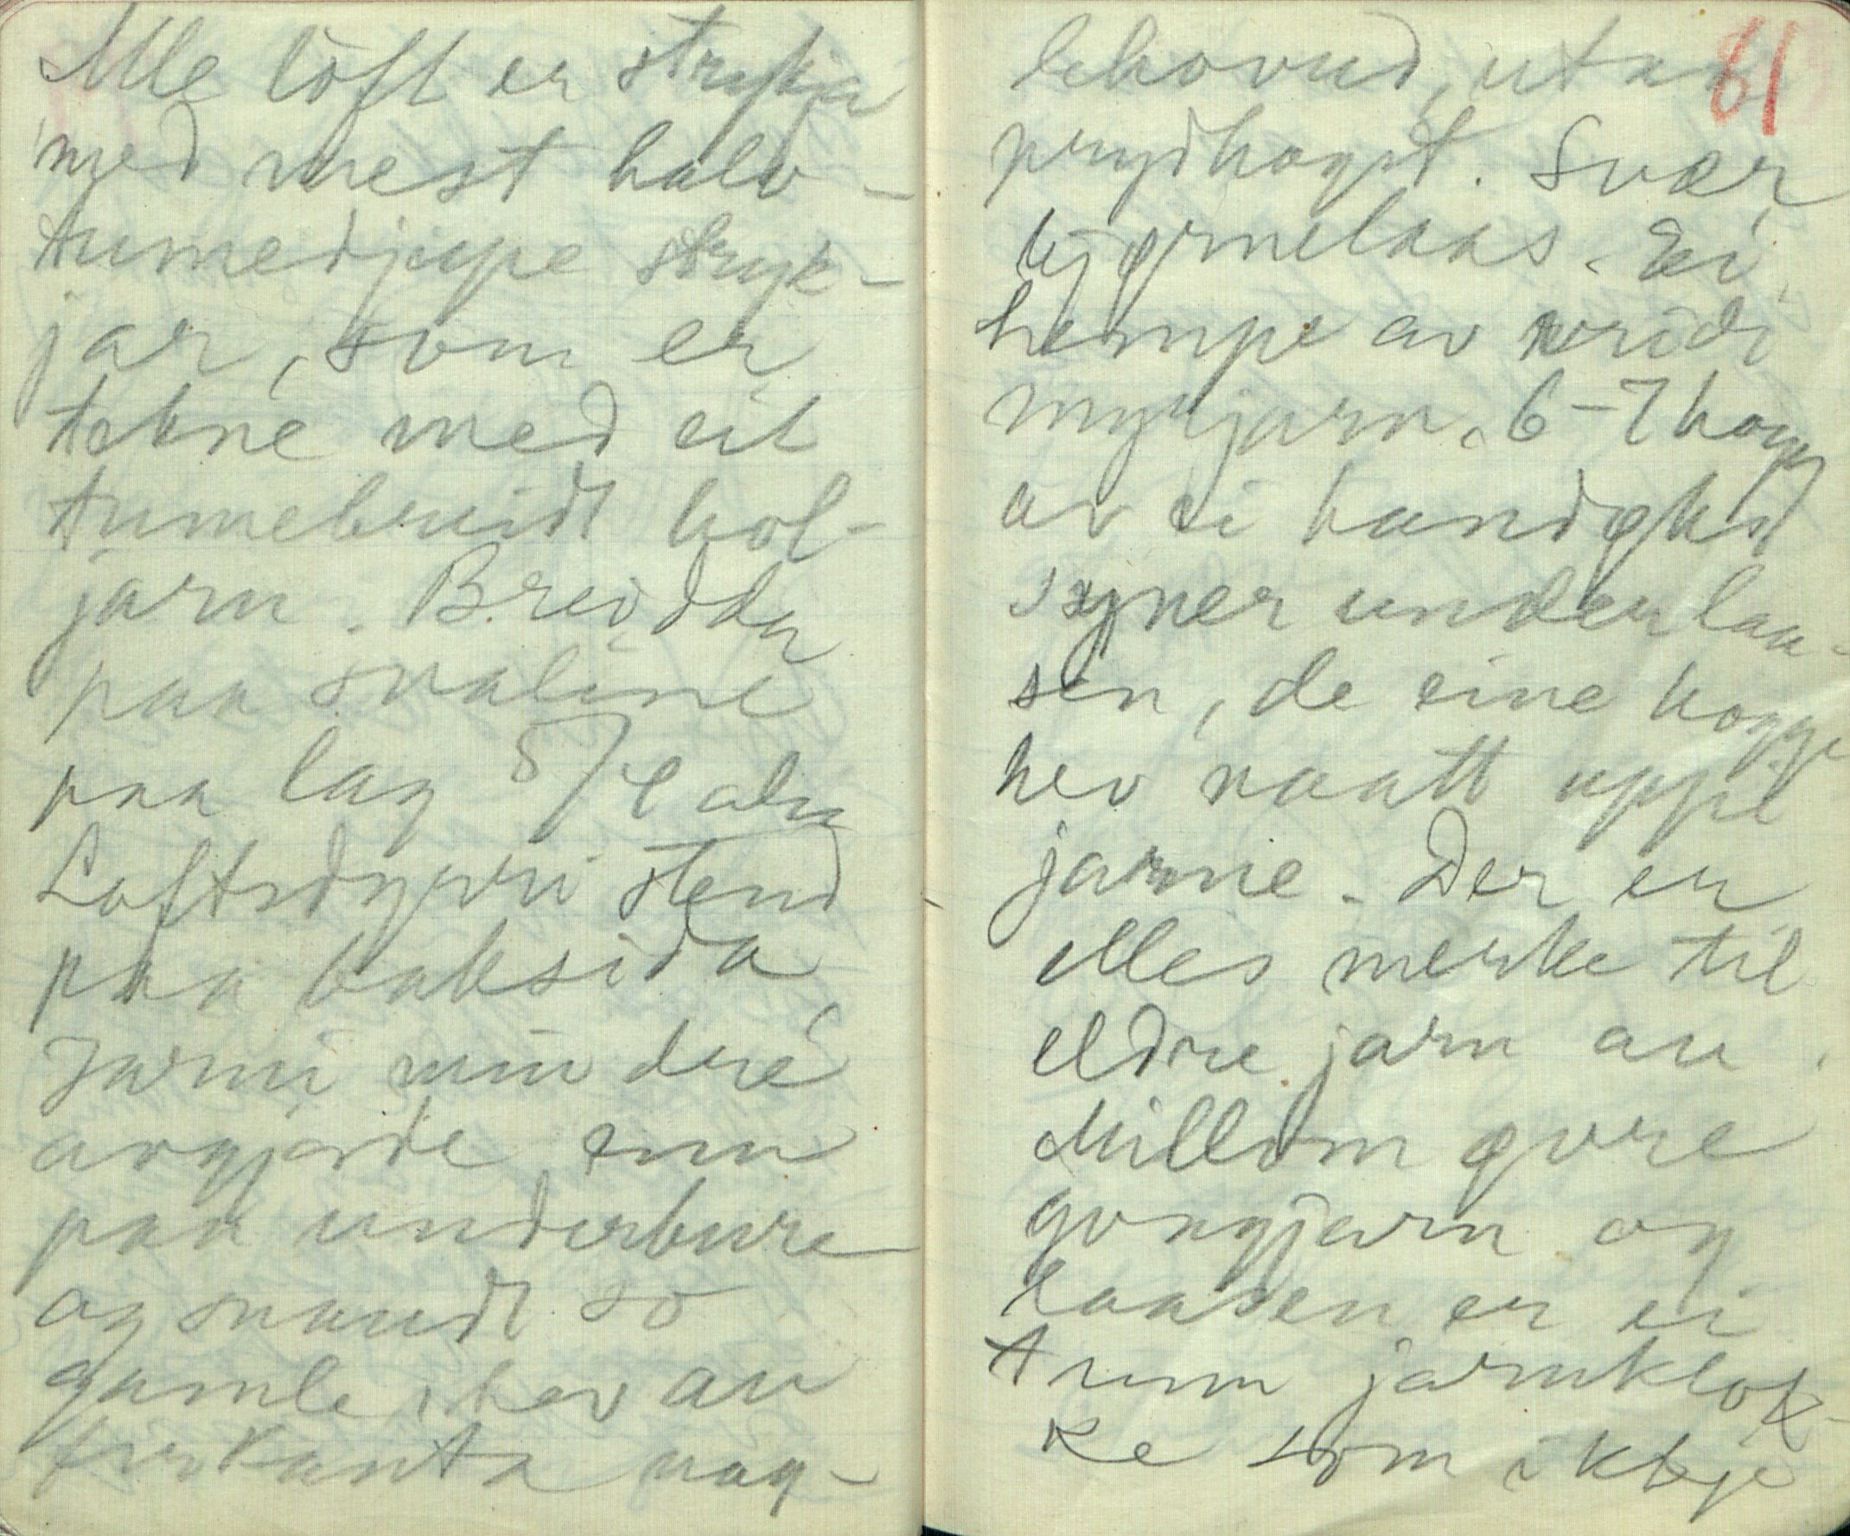 Alle loft er strykja
med mest halv-
tumedjupe stryk-
jar, som er
tekne med eit
tumebreidt hol-
jarn. Breidda
paa svaline
paa lag 5/4 aln
Loftsdyrri stend
paa baksida
Jarni mindre
avgjorde enn
paa underbure
og snaudt so
gamle, hev au
firkanta nag-
lehovud, utan
prydhogst. Svær
bjørnelaas. Ei
hempe av vridi
mykjarn. 6-7 hogg
av ei handøks
syner under laa-
sen, de eine hogge
hev naatt uppi
jarnie. Der er
elles merke til
eldre jarn au.
Millom øvre
gongjarn og
laasen er ei
tunn jarnklok-
ke som ikkje
61